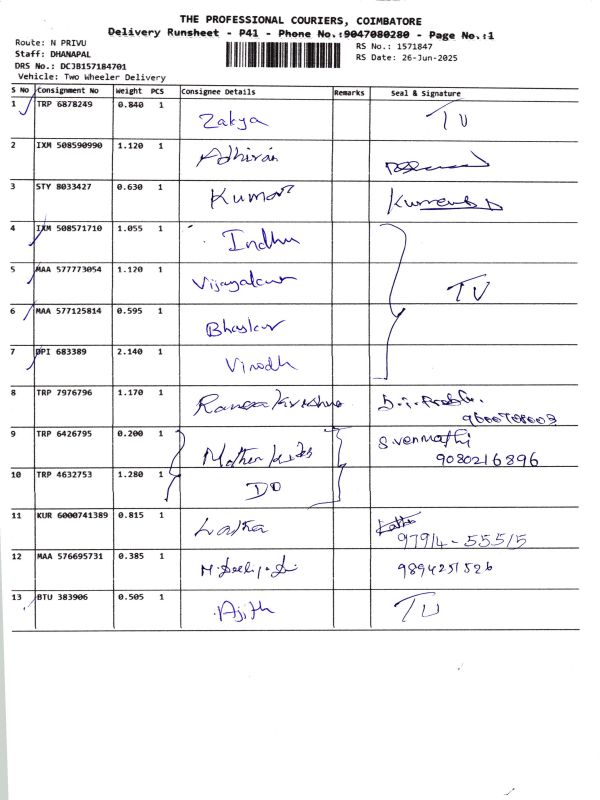 THE PROFESSIONAL COURIERS, COIMBATORE
Delivery Runsheet - P41 - Phone No.:9047080280 - Page No.:1
Route: N PRIVU
RS No.: 1571847
Staff: DHANAPAL
RS Date: 26-Jun-2025
DRS No.: DCJB157184701
Vehicle: Two Wheeler Delivery
S No Consignment No Weight PCS Consignee Details Remarks Seal & Signature
1 TRP 6878249 0.840 1 Zakya TU
2 IXM 508590990 1.120 1 Adhiran
3 STY 8033427 0.630 1 Kumar
4 IXM 508571710 1.055 1 Indhu
5 MAA 577773054 1.120 1 Vijayakur TU
6 MAA 577125814 0.595 1 Bhaskar
7 OPI 683389 2.140 1 Vinodh
8 TRP 7976796 1.170 1
9 TRP 6426795 0.200 1 S.venmathi
9080216896
10 TRP 4632753 1.280 1 DO
11 KUR 6000741389 0.815 1 Latha
97914-55515
12 MAA 576695731 0.385 1 9894251526
13 BTU 383906 0.505 1 Ajith TU